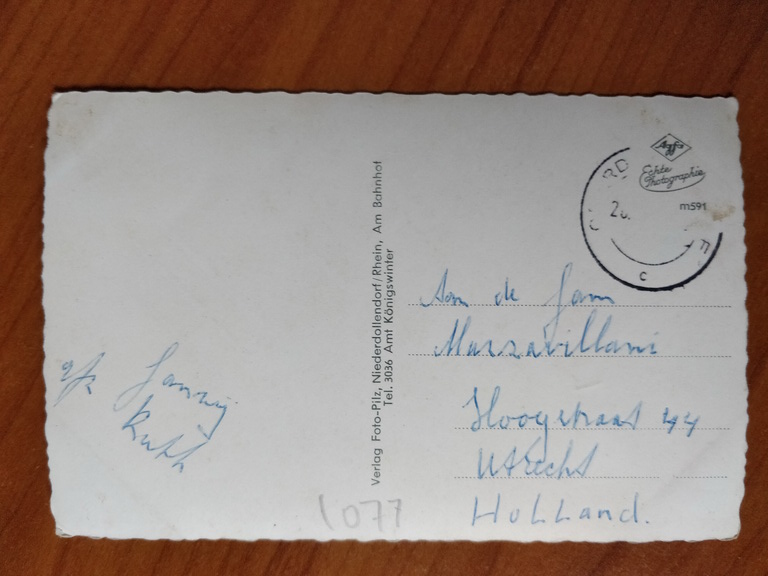 Verlag Foto-Pilz, Niederdollendorf/Rhein, Am Bahnhof
Tel. 3036 Amt Königswinter
Agfa
Echte
Photographie
m591
C
Aan de Fam
Hoogstraat 44
Utrecht
Holland.
Ruth
1077